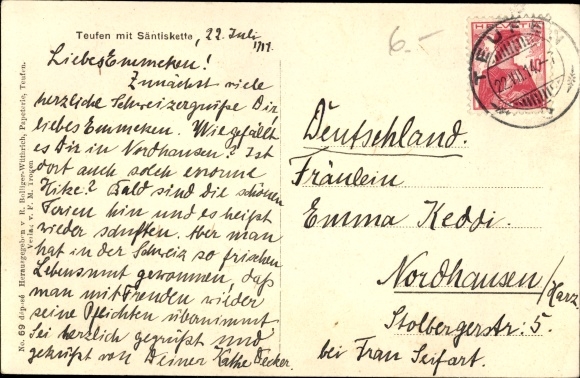 Teufen mit Säntiskette, 22. Juli
Liebes Emmeken!
Zunächst viele
herzliche Schweizergrüße Dir,
liebes Emmeken. Wie gefällt
es Dir in Nordhausen? Ist
dort auch solch enorme
Hitze? Bald sind die schönen
Ferien hin und es heißt
wieder schuften. Aber man
hat in der Schweiz so frischen
Lebensmut gewonnen, daß
man mit Freuden wieder
seine Pflichten übernimmt.
Sei herzlich gegrüßt und
geküßt von Deiner Käthe Decker.
No. 69 deposé Herausgegeben v. R. Bolliger-Wittbrich, Papeterie, Teufen.
Verlag v. F. M. Trogen
6.-
HELVETIA
TEUFEN
Deutschland.
Fräulein
Emma Keddi.
Nordhausen/Harz
Stolbergerstr. 5.
bei Frau Seifart.